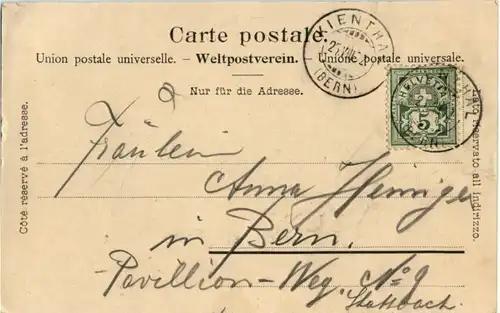 Carte postale.
Union postale universelle. – Weltpostverein. – Unione postale universale.
Nur für die Adresse.
KIENTHAL
(BERN)
5
Côté réservé à l'adresse.
Lato riservato all'indirizzo.
Fräulein
Anna
in Bern.
Pavillion-Weg. No 9